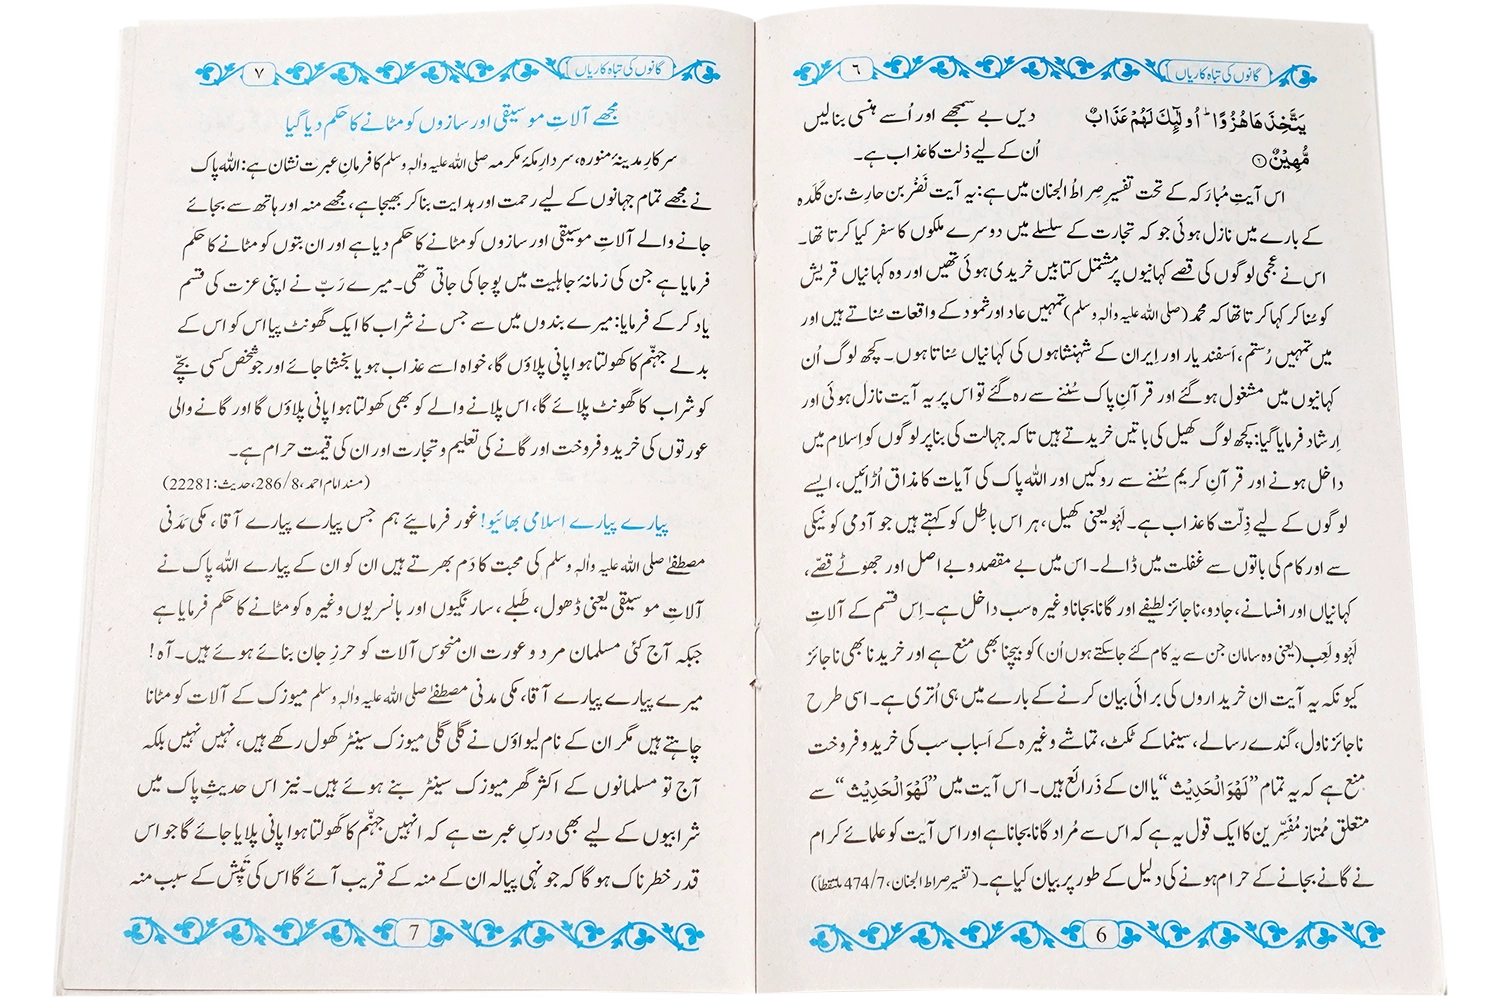 گانوں کی تباہ کاریاں
٦
يَتَّخِذَهَا هُزُوًا ؕ اُولٰٓئِكَ لَهُمْ عَذَابٌ
مُّهِيْنٌ ﴿۶﴾
دیں بے سمجھے اور اُسے ہنسی بنالیں
اُن کے لیے ذلت کا عذاب ہے۔
اس آیتِ مُبارَکہ کے تحت تفسیرِ صِراطُ الجنان میں ہے: یہ آیت نَضْر بن حارِث بن کَلَدہ
کے بارے میں نازل ہوئی جو کہ تجارت کے سلسلے میں دوسرے ملکوں کا سفر کیا کرتا تھا۔
اس نے عجمی لوگوں کی قصے کہانیوں پر مشتمل کتابیں خریدی ہوئی تھیں اور وہ کہانیاں قریش
کو سُنا کر کہا کرتا تھا کہ محمد (صلی اللہ علیہ واٰلہٖ وسلم) تمہیں عاد اور ثمود کے واقعات سُناتے ہیں اور
میں تمہیں رُستم، اَسفند یار اور اِیران کے شہنشاہوں کی کہانیاں سُناتا ہوں۔ کچھ لوگ اُن
کہانیوں میں مشغول ہو گئے اور قرآنِ پاک سُننے سے رہ گئے تو اس پر یہ آیت نازل ہوئی اور
اِرشاد فرمایا گیا: کچھ لوگ کھیل کی باتیں خریدتے ہیں تاکہ جہالت کی بنا پر لوگوں کو اِسلام میں
داخل ہونے اور قرآنِ کریم سُننے سے روکیں اور اللہ پاک کی آیات کا مذاق اُڑائیں، ایسے
لوگوں کے لیے ذِلّت کا عذاب ہے۔ لَہْو یعنی کھیل، ہر اس باطِل کو کہتے ہیں جو آدمی کو نیکی
سے اور کام کی باتوں سے غفلت میں ڈالے۔ اس میں بے مقصد و بے اصل اور جھوٹے قصّے،
کہانیاں اور افسانے، جادو، ناجائز لطیفے اور گانا بجانا وغیرہ سب داخل ہے۔ اِس قسم کے آلاتِ
لَہْو و لَعِب (یعنی وہ سامان جن سے یہ کام کئے جاسکتے ہوں اُن) کو بیچنا بھی منع ہے اور خریدنا بھی ناجائز
کیونکہ یہ آیت ان خریداروں کی برائی بیان کرنے کے بارے میں ہی اُتری ہے۔ اسی طرح
ناجائز ناول، گندے رسالے، سینما کے ٹکٹ، تماشے وغیرہ کے اَسباب سب کی خرید و فروخت
منع ہے کہ یہ تمام ”لَهْوَ الْحَدِيْث“ یا ان کے ذَرائع ہیں۔ اس آیت میں ”لَهْوَ الْحَدِيْث“ سے
متعلق مُمتاز مُفَسِّرین کا ایک قول یہ ہے کہ اس سے مُراد گانا بجانا ہے اور اس آیت کو علمائے کرام
نے گانے بجانے کے حرام ہونے کی دلیل کے طور پر بیان کیا ہے۔ (تفسیر صراط الجنان، 474/7 ملتقطاً)
6
گانوں کی تباہ کاریاں
٧
مجھے آلاتِ موسیقی اور سازوں کو مٹانے کا حکم دیا گیا
سرکارِ مدینۂ منورہ، سردارِ مکۂ مکرمہ صلی اللہ علیہ واٰلہٖ وسلم کا فرمانِ عبرت نشان ہے: اللہ پاک
نے مجھے تمام جہانوں کے لیے رحمت اور ہدایت بنا کر بھیجا ہے، مجھے منہ اور ہاتھ سے بجائے
جانے والے آلاتِ موسیقی اور سازوں کو مٹانے کا حکم دیا ہے اور ان بتوں کو مٹانے کا حکم
فرمایا ہے جن کی زمانۂ جاہلیت میں پوجا کی جاتی تھی۔ میرے رَبّ نے اپنی عزت کی قسم
یاد کر کے فرمایا: میرے بندوں میں سے جس نے شراب کا ایک گھونٹ پیا اس کو اس کے
بدلے جہنّم کا کھولتا ہوا پانی پلاؤں گا، خواہ اسے عذاب ہو یا بخشا جائے اور جو شخص کسی بچّے
کو شراب کا گھونٹ پلائے گا، اس پلانے والے کو بھی کھولتا ہوا پانی پلاؤں گا اور گانے والی
عورتوں کی خرید و فروخت اور گانے کی تعلیم و تجارت اور ان کی قیمت حرام ہے۔
(مسند امام احمد، 286/8، حدیث: 22281)
پیارے پیارے اسلامی بھائیو! غور فرمائیے ہم جس پیارے پیارے آقا، مکی مَدَنی
مصطفےٰ صلی اللہ علیہ واٰلہٖ وسلم کی محبت کا دَم بھرتے ہیں ان کو ان کے پیارے اللہ پاک نے
آلاتِ موسیقی یعنی ڈھول، طَبلے، سارنگیوں اور بانسریوں وغیرہ کو مٹانے کا حکم فرمایا ہے
جبکہ آج کئی مسلمان مرد و عورت ان منحوس آلات کو حرزِ جان بنائے ہوئے ہیں۔ آہ!
میرے پیارے پیارے آقا، مکی مدنی مصطفےٰ صلی اللہ علیہ واٰلہٖ وسلم میوزک کے آلات کو مٹانا
چاہتے ہیں مگر ان کے نام لیواؤں نے گلی گلی میوزک سینٹر کھول رکھے ہیں، نہیں نہیں بلکہ
آج تو مسلمانوں کے اکثر گھر میوزک سینٹر بنے ہوئے ہیں۔ نیز اس حدیثِ پاک میں
شرابیوں کے لیے بھی درسِ عبرت ہے کہ انہیں جہنّم کا کھولتا ہوا پانی پلایا جائے گا جو اس
قدر خطرناک ہو گا کہ جونہی پیالہ ان کے منہ کے قریب آئے گا اس کی تَپِش کے سبب منہ
7